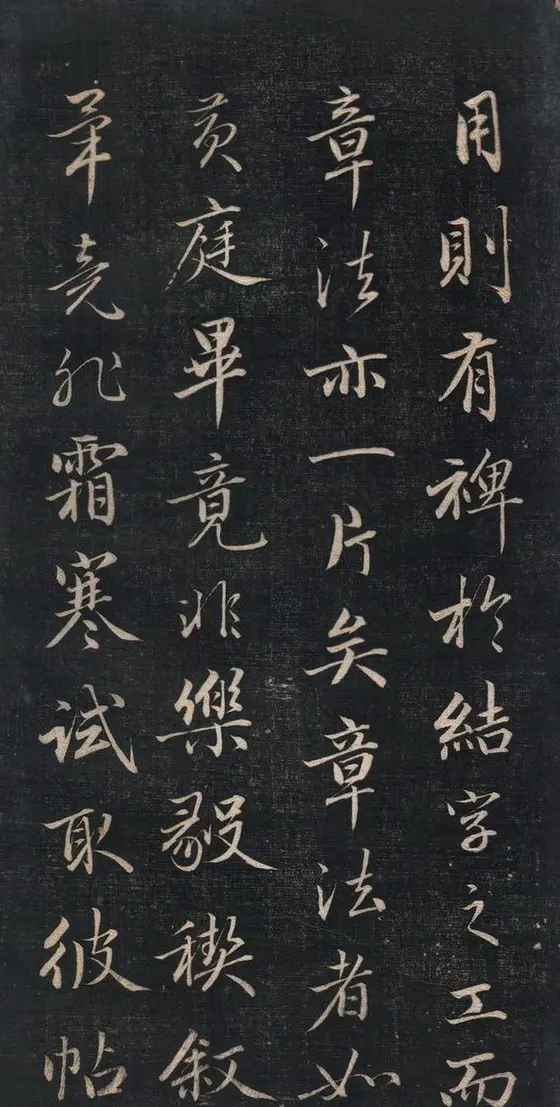 用則有裨於結字之工而
章法亦一片矣章法者如
黃庭畢竟非樂毅禊叙
畢竟非霜寒試取彼帖